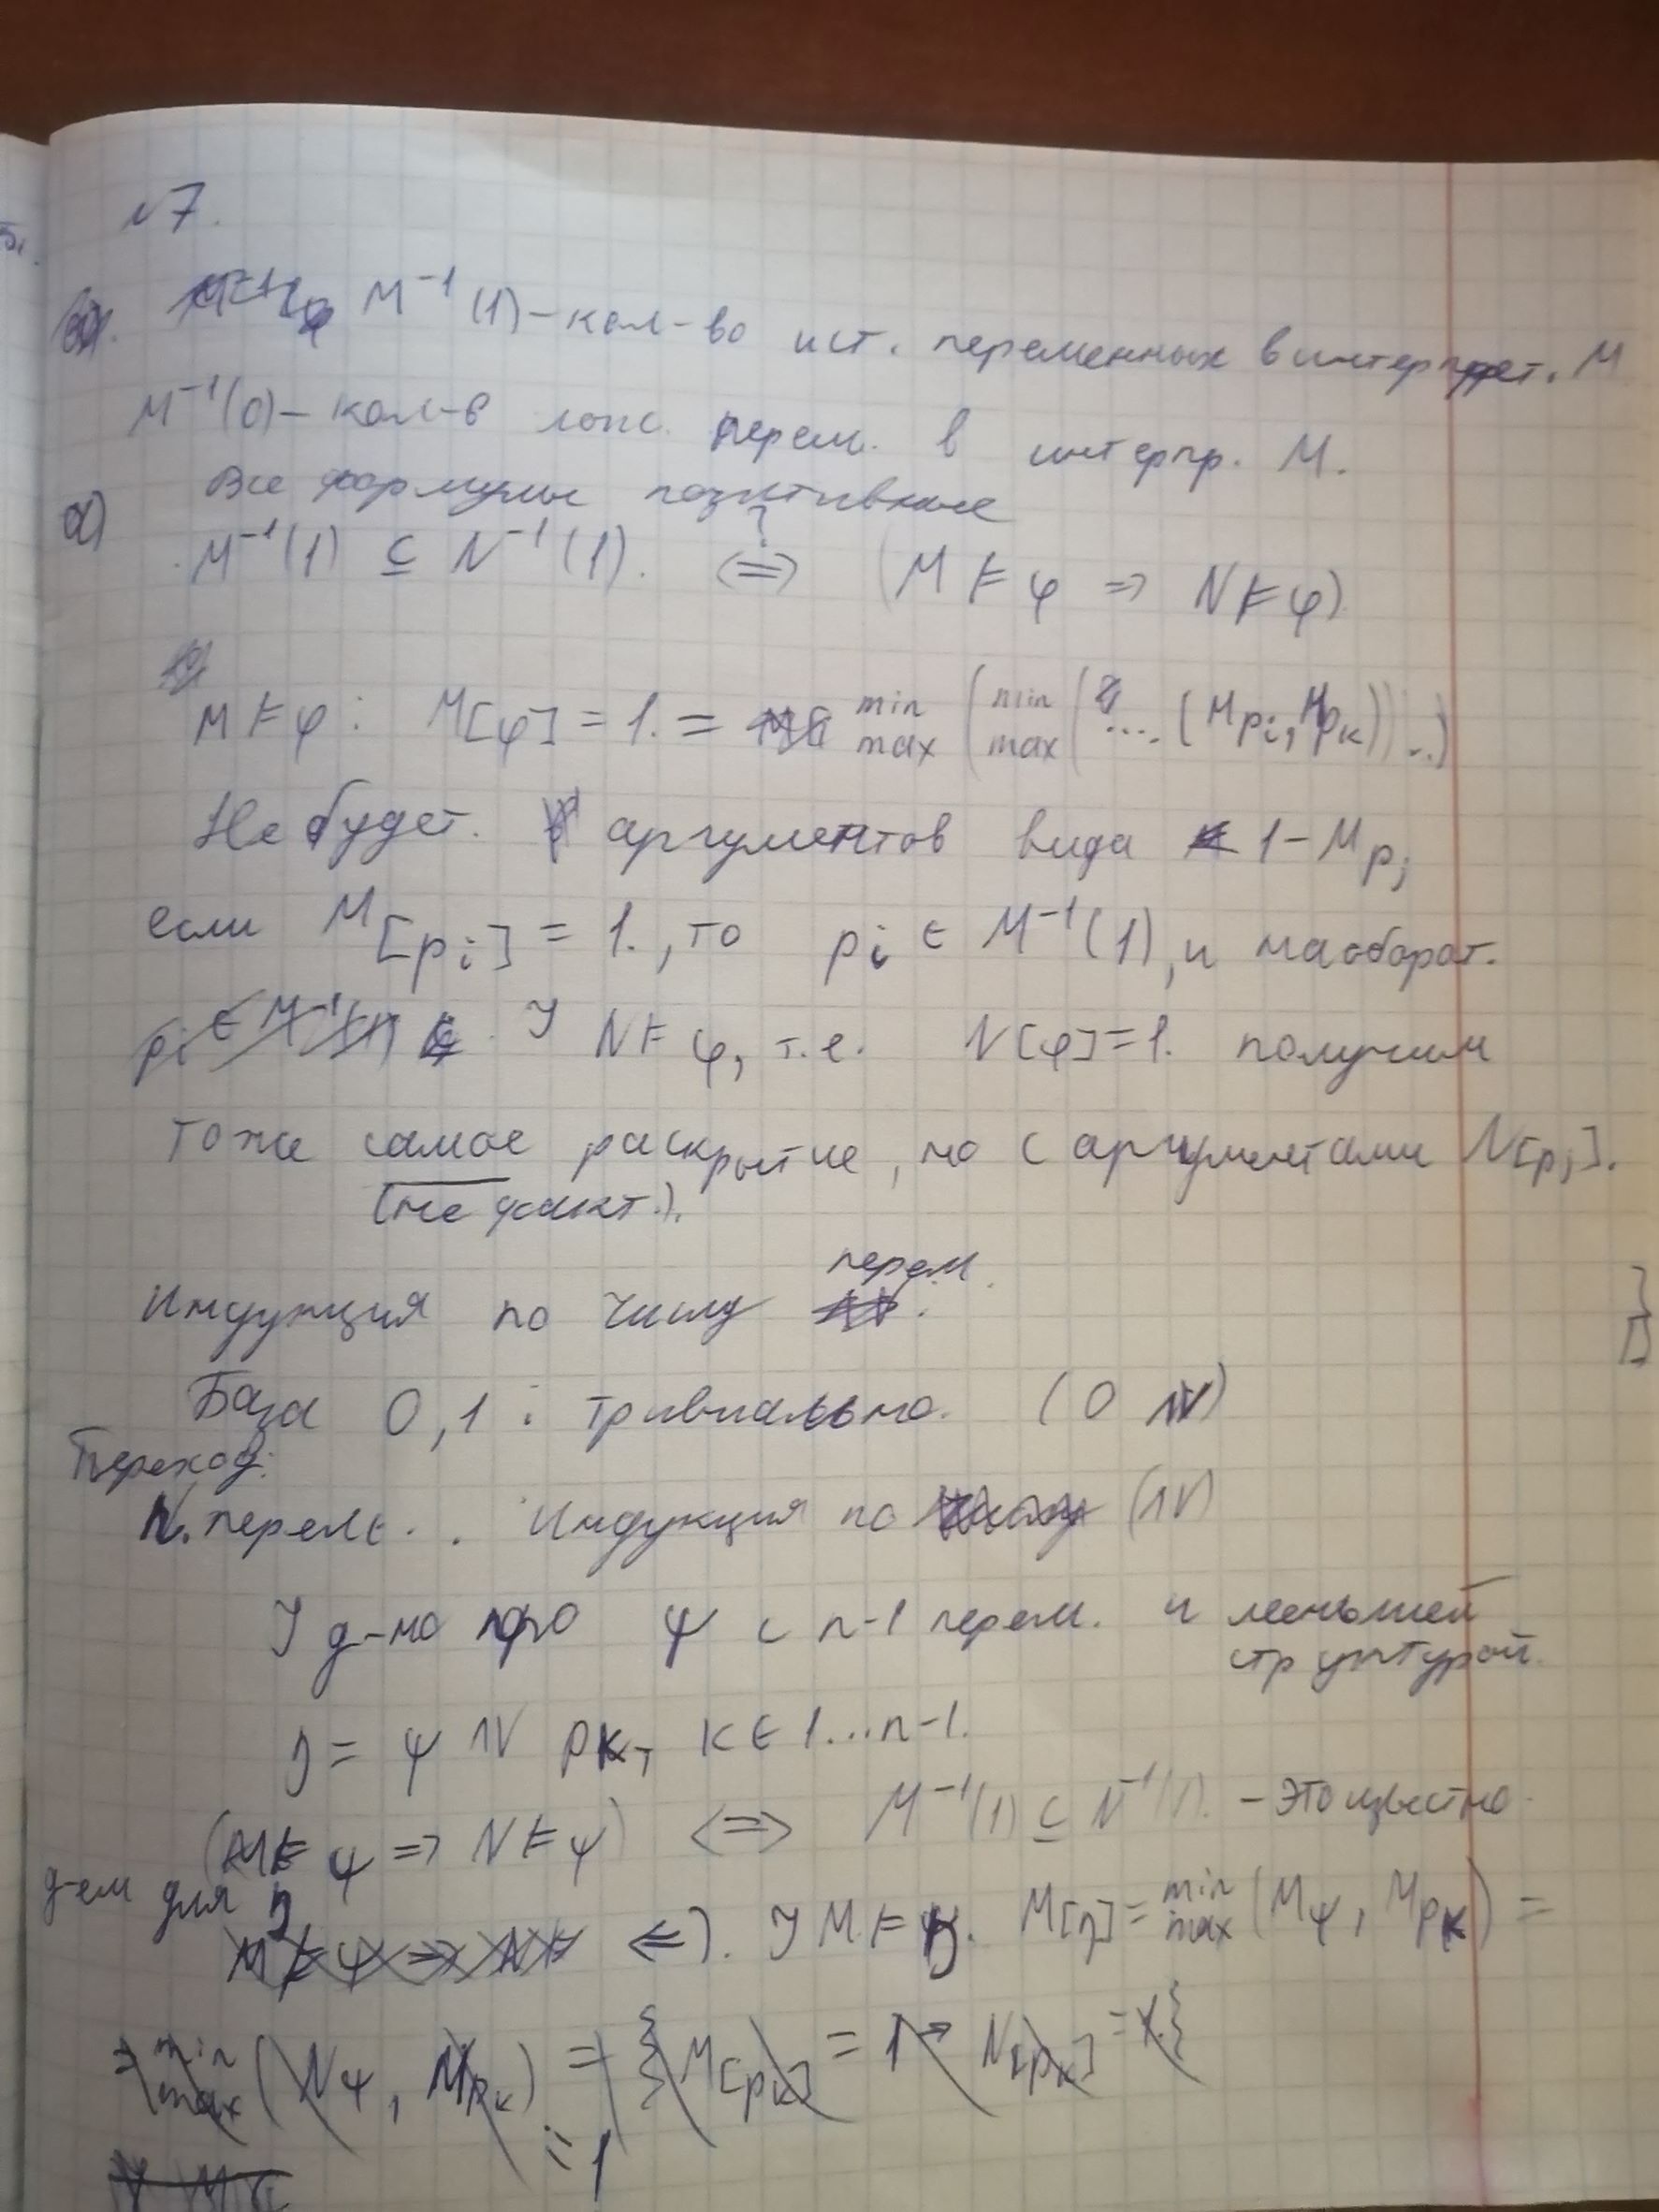 №7.
M⁻¹(1) – кол-во ист. переменных в интерпрет. M
M⁻¹(0) – кол-в ложн. перем. в интерпр. M.
Все формулы позитивные
а) M⁻¹(1) ⊆ N⁻¹(1). ⇔? (M ⊨ φ ⇒ N ⊨ φ)
M ⊨ φ : M[φ] = 1. = min max (min max (.... (Mpi, Mpk)) ..)
Не будет. аргументов вида 1 – Mpj
если M[pi] = 1., то pi ∈ M⁻¹(1), и наоборот.
N ⊨ φ, т.е. N[φ] = 1. получим
тоже самое раскрытие, но с аргументами N[pj].
(не факт.).
Индукция по числу перем.
База 0,1 : тривиально. (0 ∧∨)
Переход:
n. перем. Индукция по (∧∨)
д-но про ψ с n-1 перем. и меньшей
структурой.
η = ψ ∧∨ pk, k ∈ 1...n-1.
(M ⊨ ψ ⇒ N ⊨ ψ) ⇔ M⁻¹(1) ⊆ N⁻¹(1). – это известно.
д-ем для η
⇐). M ⊨ η. M[η] = min max (Mψ, Mpk) =